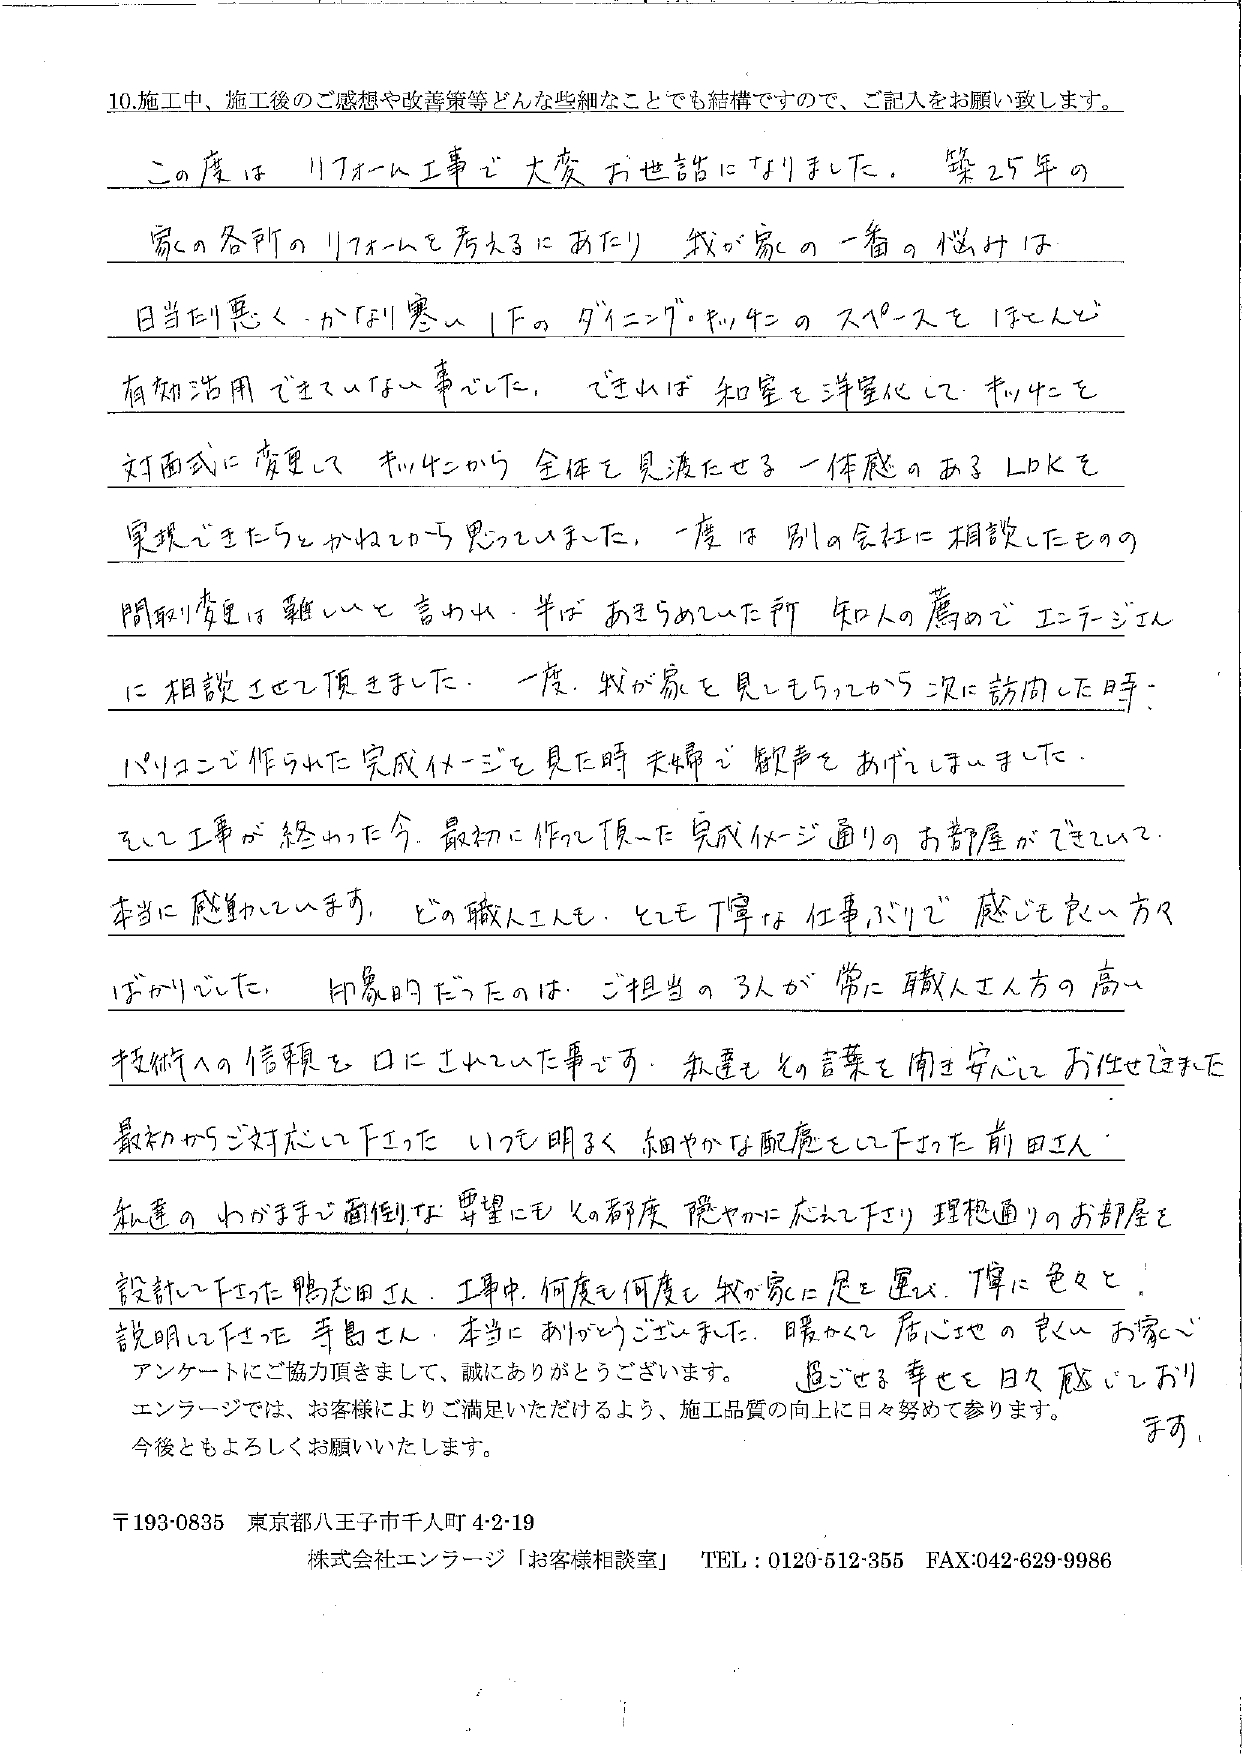 10.施工中、施工後のご感想や改善策等どんな些細なことでも結構ですので、ご記入をお願い致します。
この度は リフォーム工事で 大変 お世話になりました. 築25年の
家の各所のリフォームを考えるにあたり 我が家の一番の悩みは
日当たり悪く、かなり寒い1Fの ダイニング・キッチンの スペースを ほとんど
有効活用できていない事でした. できれば 和室を洋室化して キッチンを
対面式に変更して キッチンから 全体を見渡たせる一体感のあるLDKを
実現できたらと かねてから思っていました. 一度は 別の会社に相談したものの
間取り変更は難しいと言われ、半ば あきらめていた所 知人の薦めで エンラージさん
に相談させて頂きました. 一度、我が家を見てもらってから 次に訪問した時、
パソコンで作られた完成イメージを見た時 夫婦で歓声をあげてしまいました.
そして工事が終わった今、最初に作って頂いた完成イメージ通りのお部屋ができていて、
本当に感動しています. どの職人さんも、とても丁寧な仕事ぶりで 感じも良い方々
ばかりでした. 印象的だったのは、ご担当の3人が常に職人さん方の高い
技術への信頼を口にされていた事です. 私達もその言葉を聞き安心してお任せできました
最初からご対応して下さった いつも明るく 細やかな配慮をして下さった前田さん、
私達の わがままで面倒な要望にも その都度 穏やかに応えて下さり 理想通りのお部屋を
設計して下さった鴨志田さん、工事中、何度も何度も 我が家に足を運び、丁寧に色々と
説明して下さった 寺島さん、本当にありがとうございました. 暖かくて居心地の良い お家で
アンケートにご協力頂きまして、誠にありがとうございます。 過ごせる幸せを日々感じており
エンラージでは、お客様によりご満足いただけるよう、施工品質の向上に日々努めて参ります。 ます.
今後ともよろしくお願いいたします。
〒193-0835 東京都八王子市千人町 4-2-19
株式会社エンラージ「お客様相談室」 TEL：0120-512-355 FAX:042-629-9986